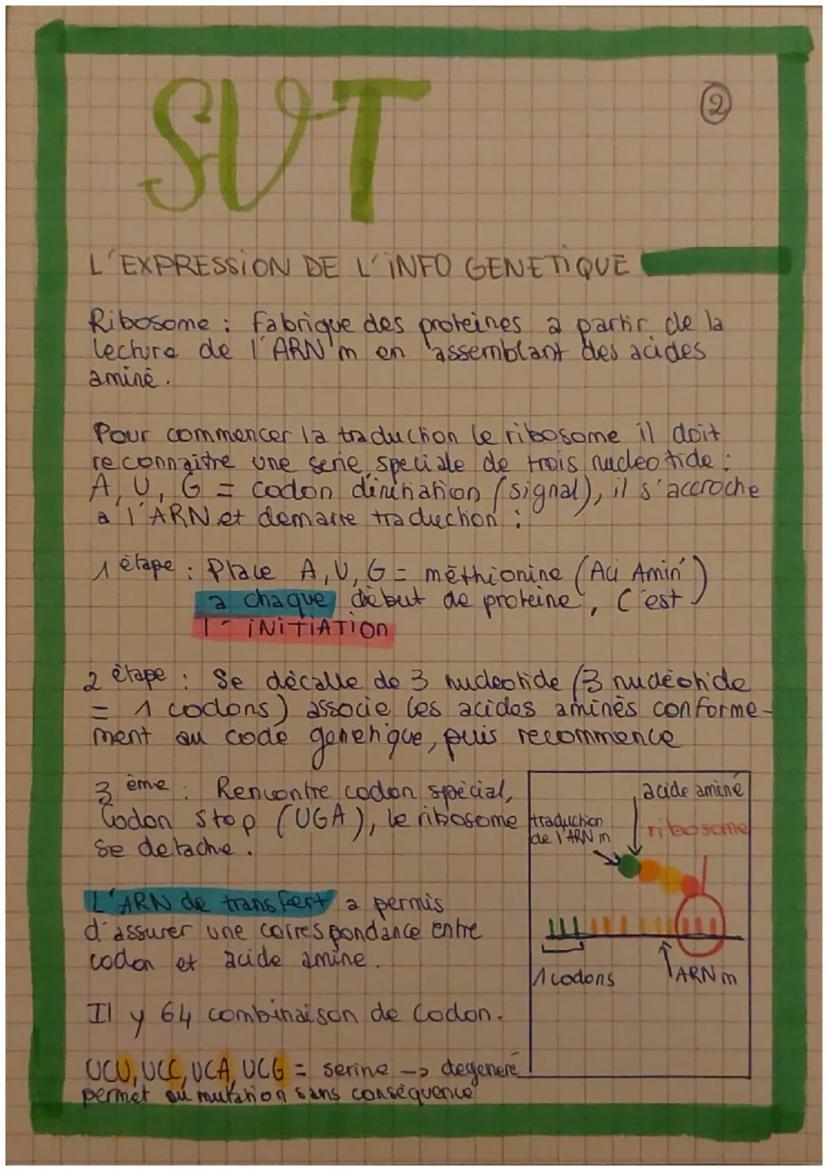 SVT
2
L'EXPRESSION DE L'INFO GENETIQUE
Ribosome : Fabrique des proteines a partir de la
lecture de l'ARN m en assemblant des acides
aminé.
Pour commencer la traduction le ribosome il doit
reconnaitre une serie speciale de trois nucleotide :
A, U, G = codon d'initiation (signal), il s'accroche
a l'ARN et demarre traduction :
1 étape : Place A, U, G = méthionine (Aci Amin')
a chaque début de proteine, C'est
l'INITIATION
2 étape : Se décalle de 3 nucleotide (3 nucléotide
= 1 codons) associe les acides aminés conforme-
ment au code genetique, puis recommence
3 ème : Rencontre codon spécial,
Codon Stop (UGA), le ribosome
se detache.
L'ARN de transfert a permis
d'assurer une correspondance entre
codon et acide amine.
Il y 64 combinaison de Codon.
UCU, UCC, UCA, UCG = serine -> degeneré
permet au mutation sans conséquence
acide aminé
traduction
de l'ARN m
ribosome
1 codons
ARN m